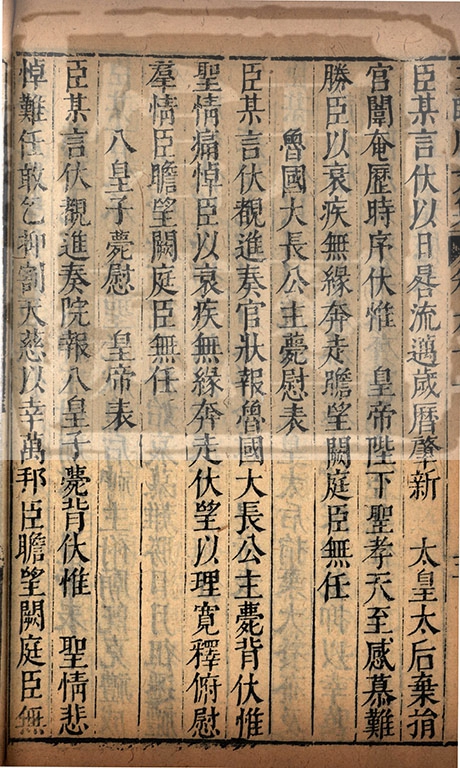 臣某言伏以日晷流邁歲曆肇新　太皇太后棄捐
官闈奄歷時序伏惟　皇帝陛下聖孝天至感慕難
勝臣以哀疾無緣奔走瞻望闕庭臣無任
魯國大長公主薨慰表
臣某言伏覩進奏官狀報魯國大長公主薨背伏惟
聖情痛悼臣以哀疾無緣奔走伏望以理寬釋俯慰
羣情臣瞻望闕庭臣無任
八皇子薨慰　皇帝表
臣某言伏覩進奏院報八皇子薨背伏惟　聖情悲
悼難任敢乞抑割天慈以幸萬邦臣瞻望闕庭臣無